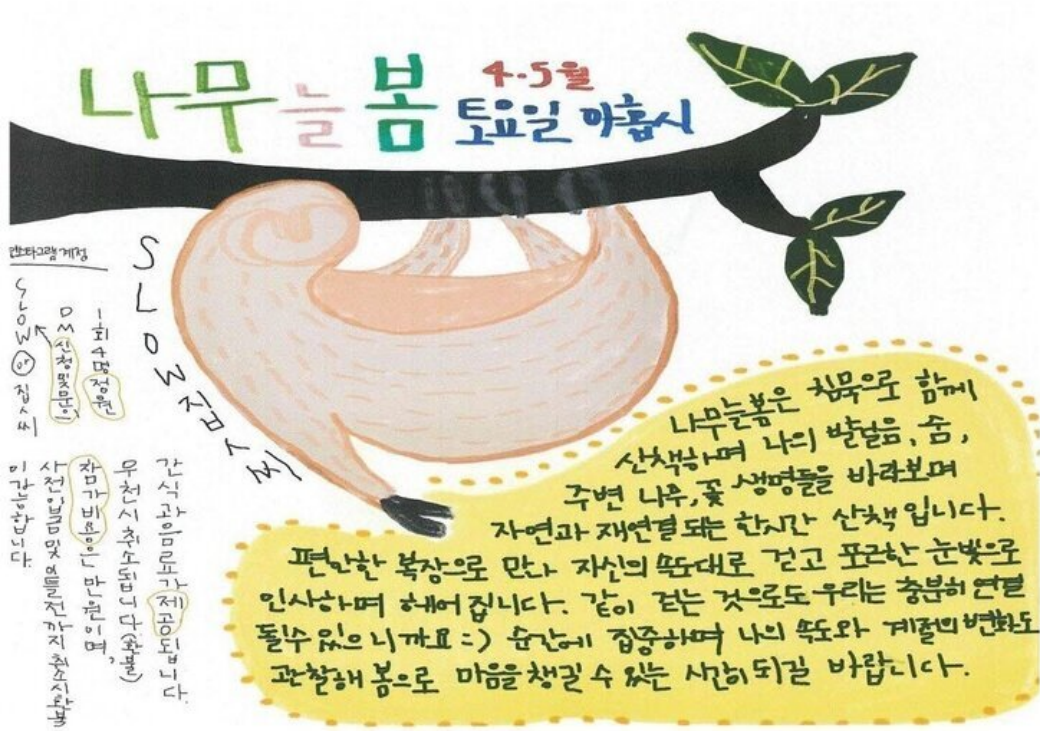 나무늘봄
4·5월
토요일 아홉시
SLOW집ㅅ씨
인스타그램계정
SLOW or 집ㅅ씨
DM신청및문의
1회 4명정원
간식과음료가제공됩니다.
우천시취소됩니다(환불)
참가비용은만원이며,
사전입금및이틀전까지취소시환불
이가능합니다.
나무늘봄은 침묵으로 함께
산책하며 나의 발걸음, 숨,
주변 나무, 꽃 생명들을 바라보며
자연과 재연결 되는 한시간 산책 입니다.
편안한 복장으로 만나 자신의 속도대로 걷고 포근한 눈빛으로
인사하며 헤어 집니다. 같이 걷는 것으로도 우리는 충분히 연결
될수 있으니까요 =) 순간에 집중하며 나의 속도와 계절의 변화도
관찰해 봄으로 마음을 챙길 수 있는 시간이 되길 바랍니다.